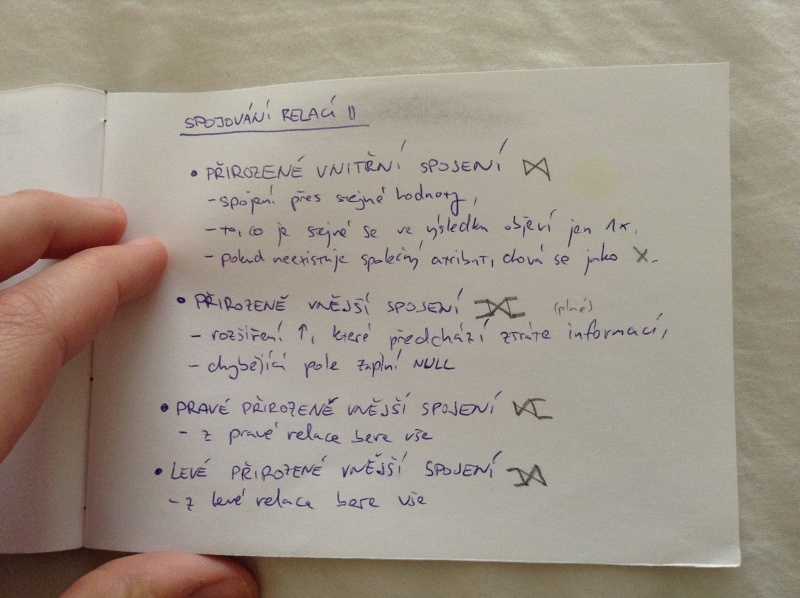 SPOJOVÁNÍ RELACÍ II
• PŘIROZENÉ VNITŘNÍ SPOJENÍ ⋈
- spojení přes stejné hodnoty,
- to, co je stejné se ve výsledku objeví jen 1x.
- pokud neexistuje společný atribut, chová se jako ×.
• PŘIROZENÉ VNĚJŠÍ SPOJENÍ ⟗ (plné)
- rozšíření ↑, které předchází ztrátě informací,
- chybějící pole zaplní NULL
• PRAVÉ PŘIROZENÉ VNĚJŠÍ SPOJENÍ ⟖
- z pravé relace bere vše
• LEVÉ PŘIROZENÉ VNĚJŠÍ SPOJENÍ ⟕
- z levé relace bere vše